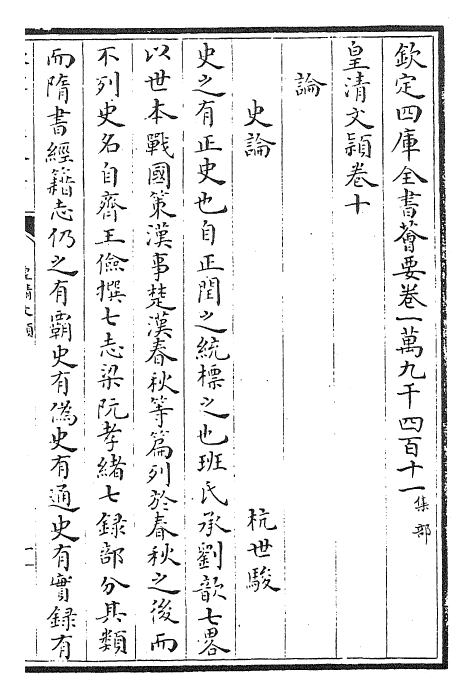 欽定四庫全書薈要卷一萬九千四百十一集部
皇清文穎卷十
論
史論 杭世駿
史之有正史也自正閏之統標之也班氏承劉歆七畧
以世本戰國策漢事楚漢春秋等篇列於春秋之後而
不列史名自齊王儉撰七志梁阮孝緒七録部分其類
而隋書經籍志仍之有霸史有偽史有通史有實録有
皇清文穎